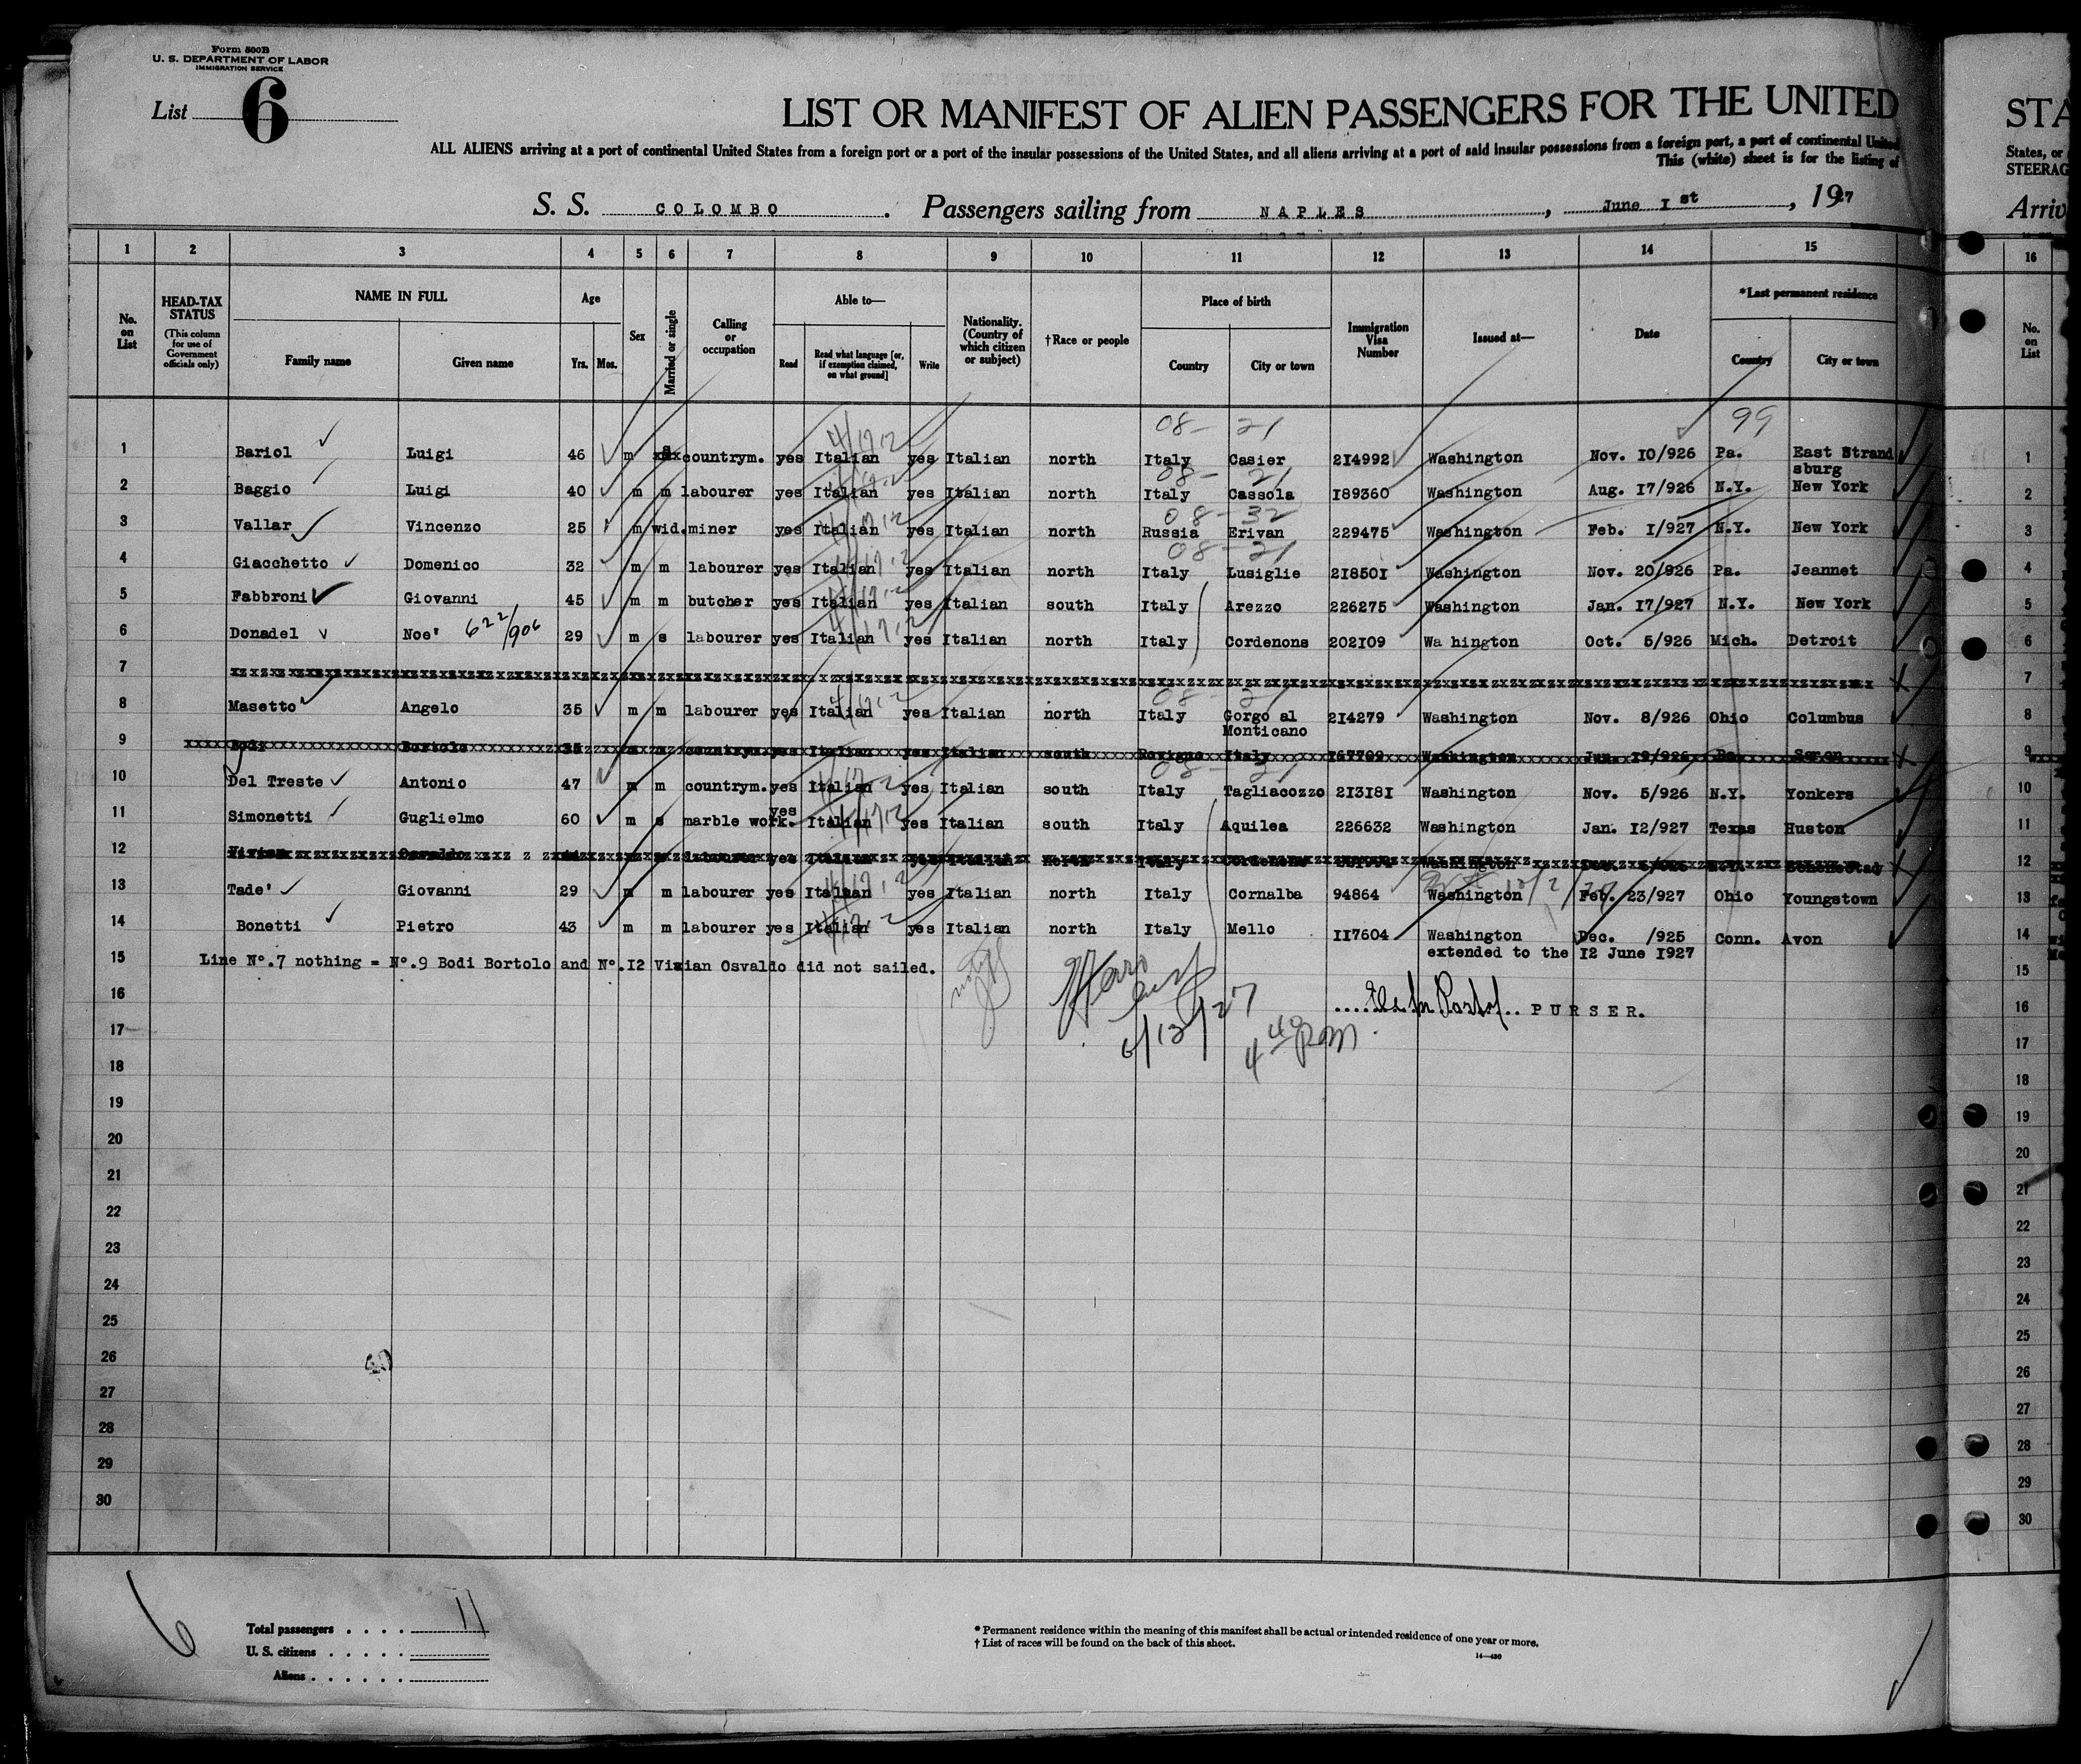 Form 500B
U. S. DEPARTMENT OF LABOR
IMMIGRATION SERVICE
List 6
LIST OR MANIFEST OF ALIEN PASSENGERS FOR THE UNITED
STA
ALL ALIENS arriving at a port of continental United States from a foreign port or a port of the insular possessions of the United States, and all aliens arriving at a port of said insular possessions from a foreign port, a port of continental United
States, or
This (white) sheet is for the listing of
STEERAG
S. S. COLOMBO. Passengers sailing from NAPLES, June 1st, 1927
Arriv
1 2 3 4 5 6 7 8 9 10 11 12 13 14 15 16
No. on List
HEAD-TAX STATUS
(This column for use of Government officials only)
NAME IN FULL
Family name
Given name
Age
Yrs.
Mos.
Sex
Married or single
Calling or occupation
Able to—
Read
Read what language [or, if exemption claimed, on what ground]
Write
Nationality. (Country of which citizen or subject)
†Race or people
Place of birth
Country
City or town
Immigration Visa Number
Issued at—
Date
*Last permanent residence
Country
City or town
No. on List
08- 21 99
1 Bariol Luigi 46 m s countrym. yes Italian yes Italian north Italy Casier 214992 Washington Nov. 10/926 Pa. East Strand 1
sburg
08- 21
2 Baggio Luigi 40 m m labourer yes Italian yes Italian north Italy Cassola 189360 Washington Aug. 17/926 N.Y. New York 2
08-32
3 Vallar Vincenzo 25 m wid. miner yes Italian yes Italian north Russia Erivan 229475 Washington Feb. 1/927 N.Y. New York 3
08-21
4 Giacchetto Domenico 32 m m labourer yes Italian yes Italian north Italy Lusiglie 218501 Washington Nov. 20/926 Pa. Jeannet 4
5 Fabbroni Giovanni 45 m m butcher yes Italian yes Italian south Italy Arezzo 226275 Washington Jan. 17/927 N.Y. New York 5
6 Donadel Noe' 622/906 29 m s labourer yes Italian yes Italian north Italy Cordenons 202109 Wa hington Oct. 5/926 Mich. Detroit 6
7 7
08-21
8 Masetto Angelo 35 m m labourer yes Italian yes Italian north Italy Gorgo al 214279 Washington Nov. 8/926 Ohio Columbus 8
Monticano
9 Bodi Bortolo 35 countrym. yes Italian yes Italian south Rovigno Italy 167709 Washington Jun. 19/926 Pa. 9
08-21
10 Del Treste Antonio 47 m m countrym. yes Italian yes Italian south Italy Tagliacozzo 213181 Washington Nov. 5/926 N.Y. Yonkers 10
11 Simonetti Guglielmo 60 m s marble work. yes Italian yes Italian south Italy Aquilea 226632 Washington Jan. 12/927 Texas Huston 11
12 Vivian Osvaldo labourer yes Italian yes Italian north Italy Cordenons Washington 12
13 Tade' Giovanni 29 m m labourer yes Italian yes Italian north Italy Cornalba 94864 Washington Feb. 23/927 Ohio Youngstown 13
14 Bonetti Pietro 43 m m labourer yes Italian yes Italian north Italy Mello 117604 Washington Dec. /925 Conn. Avon 14
extended to the 12 June 1927
15 Line N°.7 nothing = N°.9 Bodi Bortolo and N°.12 Vivian Osvaldo did not sailed. 15
16 PURSER. 16
6/13/27
4 40 pm
17 17
18 18
19 19
20 20
21 21
22 22
23 23
24 24
25 25
26 26
27 27
28 28
29 29
30 30
6
Total passengers . . . . 11
U. S. citizens . . . . .
Aliens . . . . . .
* Permanent residence within the meaning of this manifest shall be actual or intended residence of one year or more.
† List of races will be found on the back of this sheet.
14—430